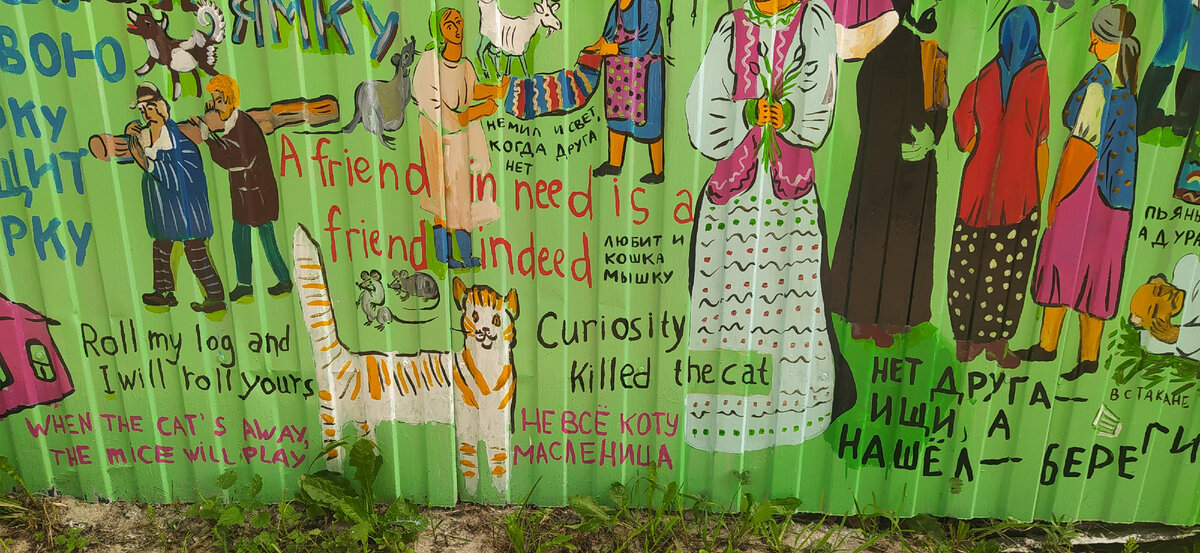 ЯМКУ
ВОЮ
РКУ
ЩИТ
РКУ
A friend in need is a
friend indeed
НЕ МИЛ И СВЕТ,
КОГДА ДРУГА
НЕТ
ЛЮБИТ И
КОШКА
МЫШКУ
Roll my log and
I will roll yours
WHEN THE CAT'S AWAY,
THE MICE WILL PLAY
Curiosity
killed the cat
НЕ ВСЁ КОТУ
МАСЛЕНИЦА
НЕТ ДРУГА—
ИЩИ, А
НАШЁЛ— БЕРЕГИ
ПЬЯНЬ
А ДУРА
В СТАКАНЕ